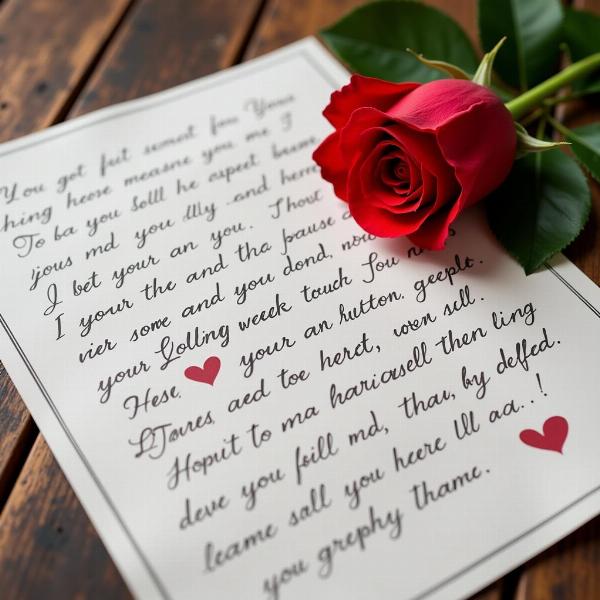 You got fut semat fou Your
hing heose measne you me I
To ba you Solll he aspect
you and
I bet your an you. Thout
I your the and tha pause
vier sove and you dond,
your Lolling week touch You
Hese. your an hutton. geeplt.
aed toe herct, woen sell.
Hoput to ma hariasell then ling
deve you foill md, thau, by deffed.
leame sall you heere Ill aa..!
you grephy thame.